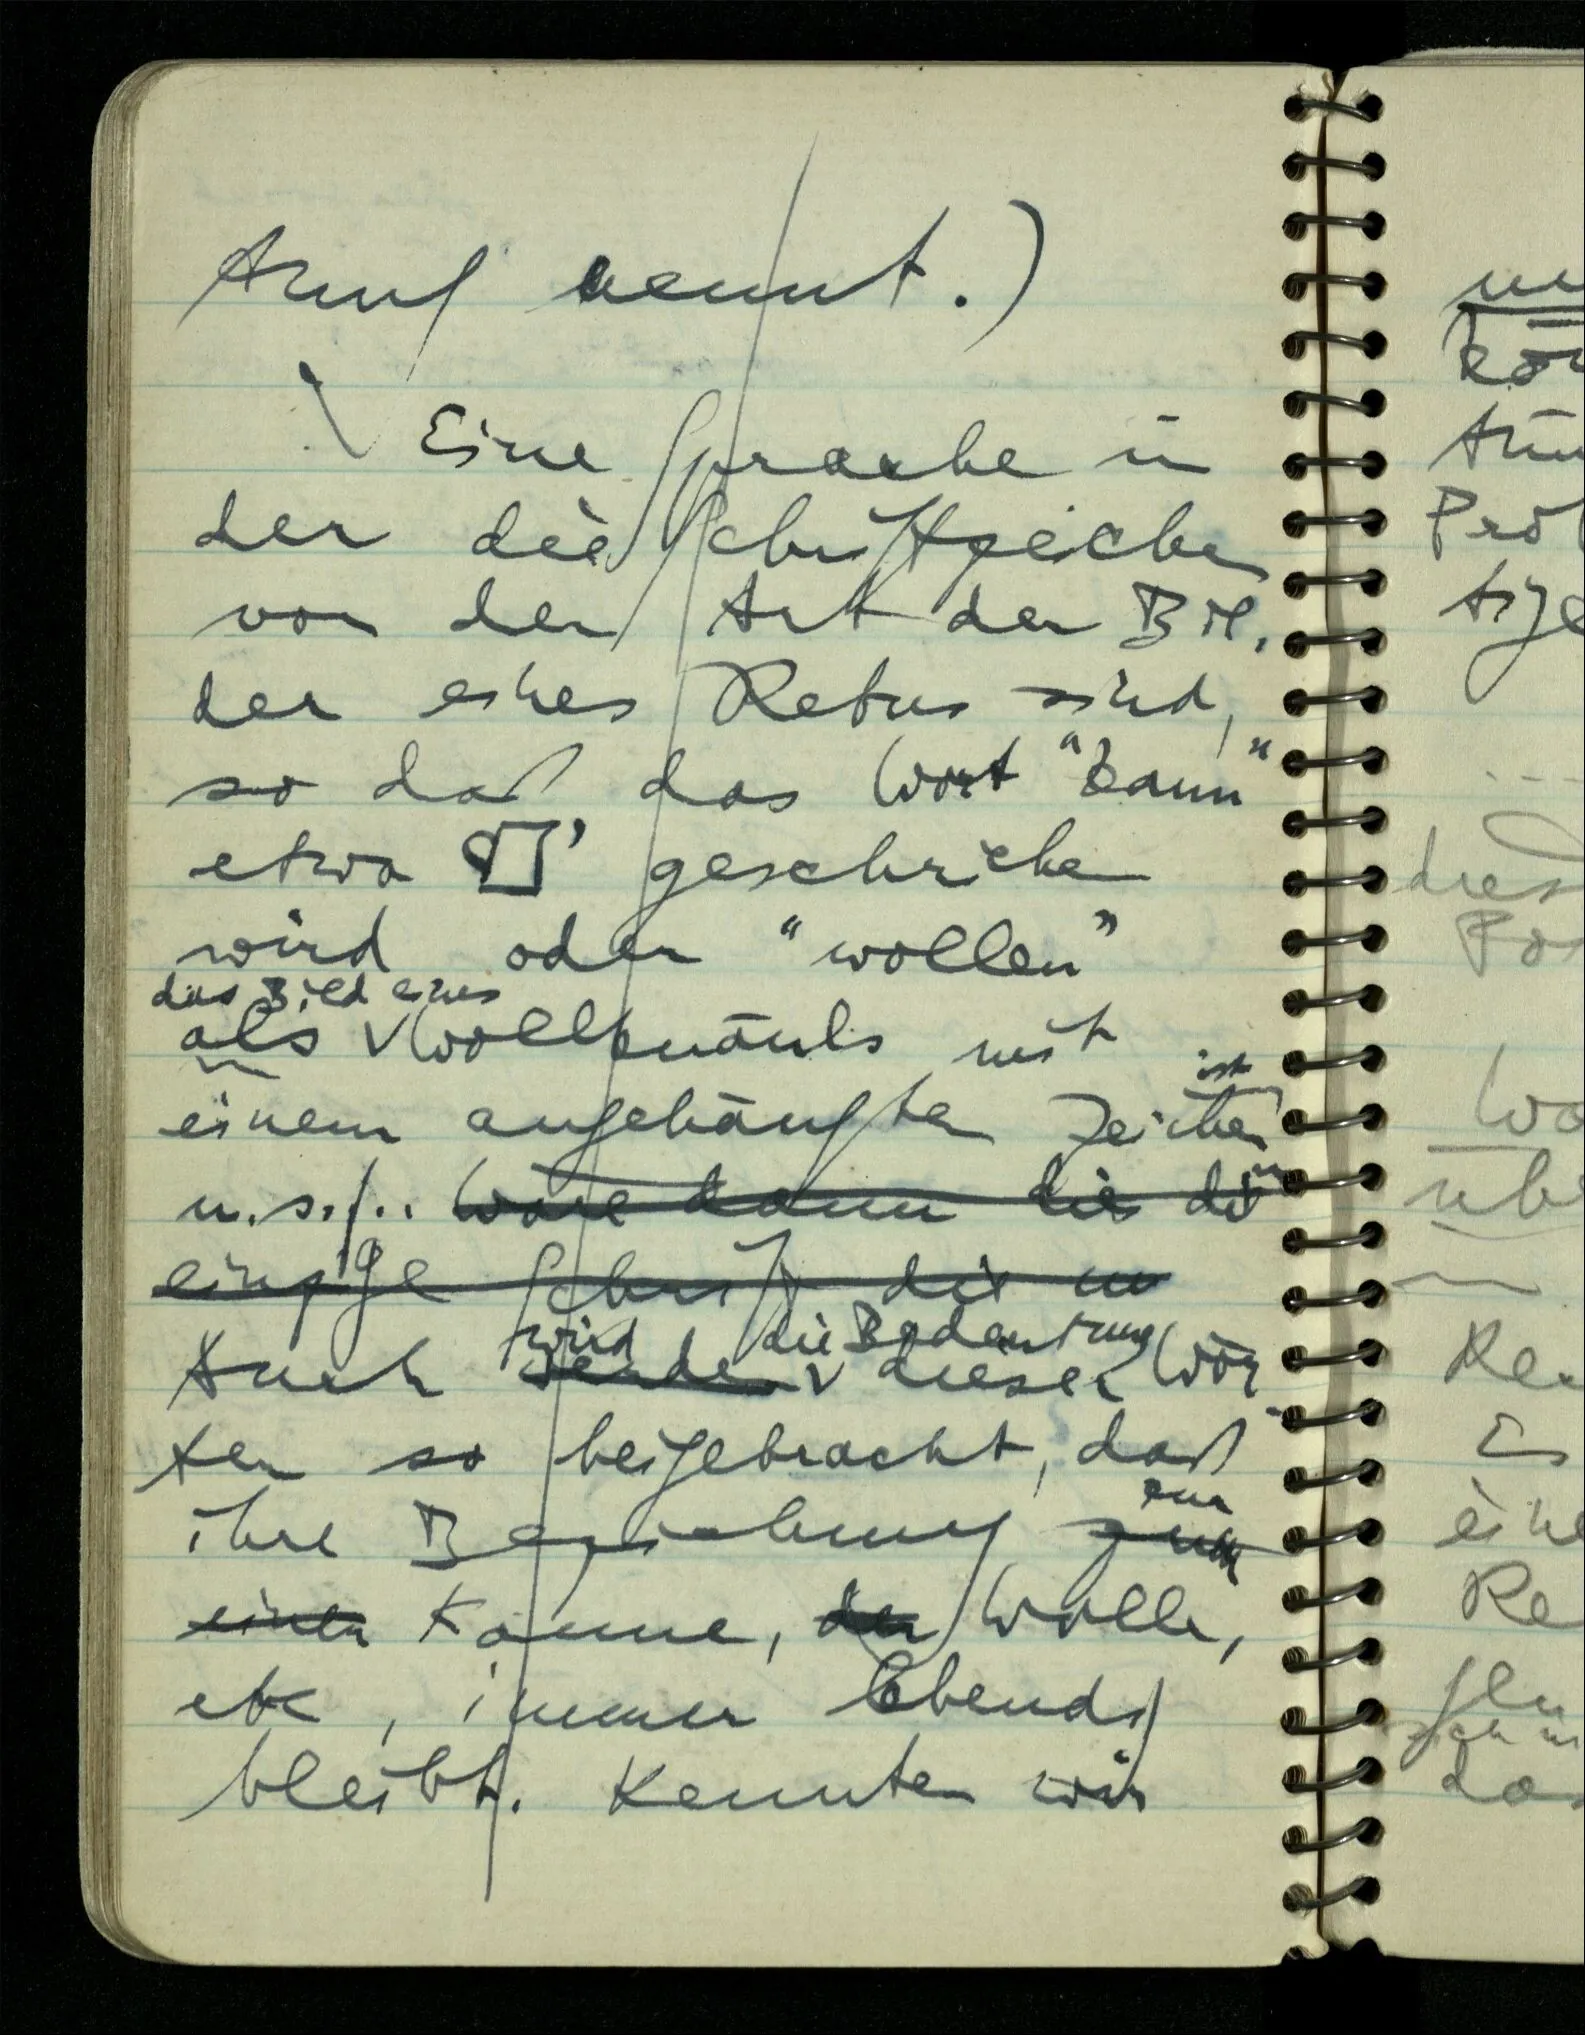 nennt.)
\ Eine Sprache in
der die Schriftzeichen
von der Art der Bil,
der eines Rebus sind,
so daß das Wort "kann"
etwa ' geschrieben
wird oder "wollen"
das Bild eines
als ∨ Wollknäuls mit
ist
einem angehängten Zeichen
u.s.f.. Wäre dann dies die
einzige Schrift die
wird die Bedeutung
Auch werden ∨ dieser Wör
ter so beigebracht, daß
ihre Beziehung
zur
einer Kanne, der Wolle,
etc, immer lebendig
bleibt. Kennten wir
dies
Re
Es
eine
Re